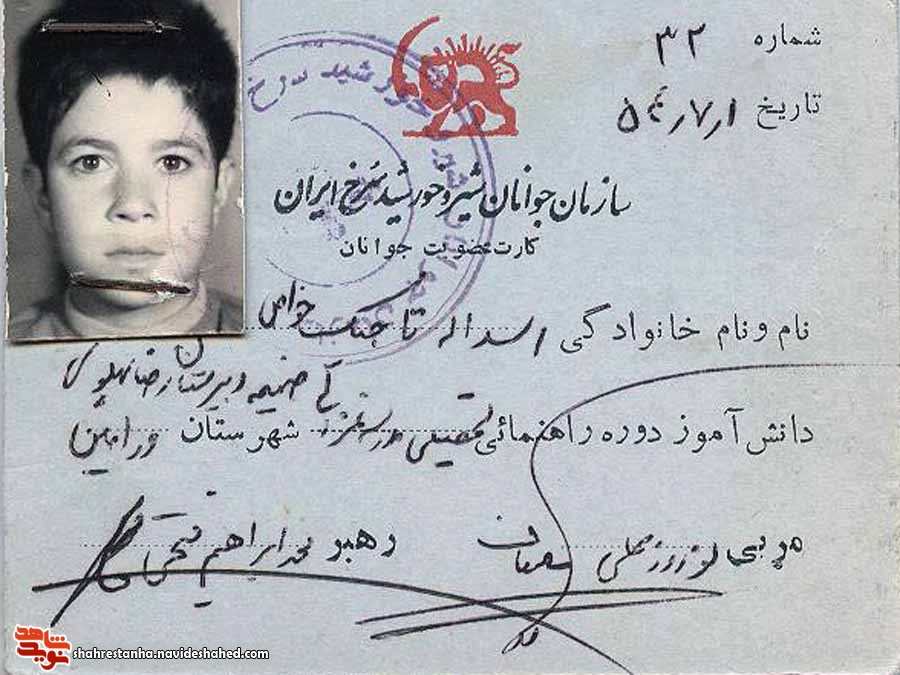 شماره ۳۲
تاریخ ۵۴٫۷٫۱
سازمان جوانان شیر و خورشید سرخ ایران
کارت عضویت جوانان
نام و نام خانوادگی اسداله تاجیک
ضمیمه دبیرستان رضا پهلوی
دانش آموز دوره راهنمائی تحصیلی شهرستان ورامین
مربی نوروزعلی
رهبر محمد ابراهیم فتحی
شاهد
نوید
shahrestanha.navideshahed.com